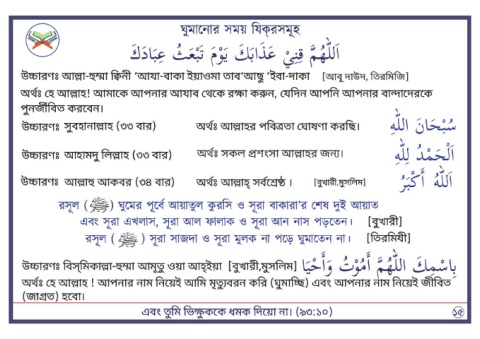 ঘুমানোর সময় যিক্‌রসমূহ
اَللّٰهُمَّ قِنِيْ عَذَابَكَ يَوْمَ تَبْعَثُ عِبَادَكَ
উচ্চারণঃ আল্লা-হুম্মা ক্বিনী 'আযা-বাকা ইয়াওমা তাব'আছু 'ইবা-দাকা [আবূ দাউদ, তিরমিজি]
অর্থঃ হে আল্লাহ! আমাকে আপনার আযাব থেকে রক্ষা করুন, যেদিন আপনি আপনার বান্দাদেরকে
পুনর্জীবিত করবেন।
উচ্চারণঃ সুবহানাল্লাহ (৩৩ বার) অর্থঃ আল্লাহর পবিত্রতা ঘোষণা করছি। سُبْحَانَ اللّٰهِ
উচ্চারণঃ আহামদু লিল্লাহ (৩৩ বার) অর্থঃ সকল প্রশংসা আল্লাহর জন্য। اَلْحَمْدُ لِلّٰهِ
উচ্চারণঃ আল্লাহু আকবর (৩৪ বার) অর্থঃ আল্লাহ্‌ সর্বশ্রেষ্ঠ । [বুখারী,মুসলিম] اَللّٰهُ اَكْبَرُ
রসূল (ﷺ) ঘুমের পূর্বে আয়াতুল কুরসি ও সূরা বাকারা'র শেষ দুই আয়াত
এবং সূরা এখলাস, সূরা আল ফালাক ও সূরা আন নাস পড়তেন। [বুখারী]
রসূল (ﷺ) সূরা সাজদা ও সূরা মুলক না পড়ে ঘুমাতেন না। [তিরমিযী]
উচ্চারণঃ বিস্‌মিকাল্লা-হুম্মা আমূতু ওয়া আহ্ইয়া [বুখারী,মুসলিম] بِاسْمِكَ اللّٰهُمَّ أَمُوْتُ وَأَحْيَا
অর্থঃ হে আল্লাহ ! আপনার নাম নিয়েই আমি মৃত্যুবরন করি (ঘুমাচ্ছি) এবং আপনার নাম নিয়েই জীবিত
(জাগ্রত) হবো।
এবং তুমি ভিক্ষুককে ধমক দিয়ো না। (৯৩:১০) ১৫